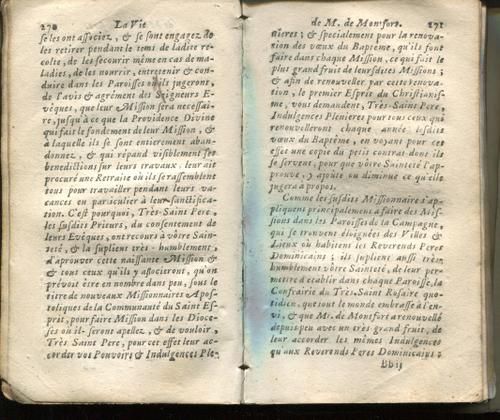 270 La Vie
se les ont associez, & se sont engagez de
les retirer pendant le tems de ladite re-
colte, de les secourir même en cas de ma-
ladies, de les nourrir, entretenir & con-
duire dans les Paroisses où ils jugeront,
de l'avis & agrément des Seigneurs E-
vêques, que leur Mission sera necessai-
re, jusqu'à ce que la Providence Divine
qui fait le fondement de leur Mission, &
à laquelle ils se sont entierement aban-
donnez, & qui répand visiblement ses
benedictions sur leurs travaux leur ait
procuré une Retraite où ils se rassemblent
tous pour travailler pendant leurs va-
cances en particulier à leur sanctifica-
tion. C'est pourquoi, Très-Saint Pere,
les susdits Prieurs, du consentement de
leurs Evêques, ont recours à vôtre Sain-
teté, & la suplient très-humblement,
d'aprouver cette naissante Mission &
& tous ceux qu'ils y associeront, qu'on
prévoit être en nombre dans peu, sous le
titre de nouveaux Missionnaires Apos-
toliques de la Communauté du Saint Es-
prit, pour faire Mission dans les Dioce-
ses où il-seront apellez, & de vouloir,
Très Saint Pere, pour cet effet leur ac-
corder vos Pouvoirs & Indulgences Ple-
de M. de Montfort. 271
nieres ; & specialement pour la renova-
tion des vœux du Baptême, qu'ils font
faire dans chaque Mission, ce qui fait le
plus grand fruit de leursdites Missions ;
& afin de renouveller par cette renova-
tion, le premier Esprit du Christianis-
me, vous demandent, Très-Saint Pere,
Indulgences Plenieres pour tous ceux qui
renouvelleront chaque année lesdits
vœux du Baptême, en voyant pour cet
effet une copie du petit contrat dont ils
se servent, pour que vôtre Sainteté l'ap-
prouve, y ajoûte ou diminuë ce qu'elle
jugera à propos.
Comme les susdits Missionnaire s'ap-
pliquent principalement à faire des Mis-
sions dans les Paroisses de la Campagne,
qui se trouvent éloignées des Villes &
Lieux où habitent les Reverends Peres
Dominicains ; ils suplient aussi très-
humblement vôtre Sainteté, de leur per-
mettre d'établir dans chaque Paroisse, la
Confrairie du Très-Saint Rosaire quo-
tidien, que tout le monde embrasse à l'en-
vi, & que Mr. de Montfort a renouvellé
depuis peu avec un très grand fruit, de
leur accorder les mêmes Indulgences
qu'aux Reverends Peres Dominicains ;
Bbij